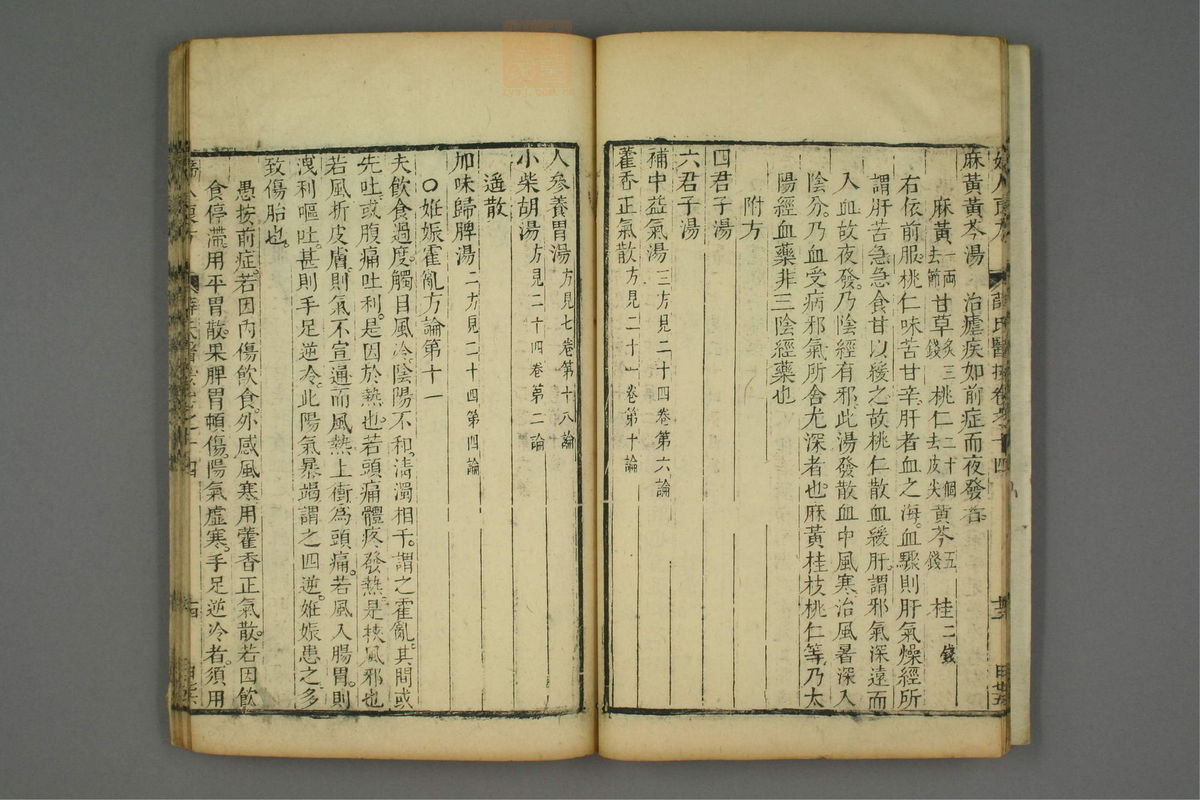 麻黃黃芩湯 治瘧疾如前症而夜發者
麻黃一兩去節 甘草炙三錢 桃仁二十個去皮尖 黃芩五錢 桂二錢
右依前服桃仁味苦甘辛肝者血之海血驟則肝氣燥經所
謂肝苦急急食甘以緩之故桃仁散血緩肝謂邪氣深遠而
入血故夜發乃陰經有邪此湯發散血中風寒治風暑深入
陰分乃血受病邪氣所舍尤深者也麻黃桂枝桃仁等乃太
陽經血藥非三陰經藥也
附方
四君子湯
六君子湯
補中益氣湯三方見二十四卷第六論
藿香正氣散方見二十一卷第十論
人參養胃湯方見七卷第十八論
小柴胡湯方見二十四卷第二論
逍遙散
加味歸脾湯二方見二十四第四論
○姙娠霍亂方論第十一
夫飲食過度觸目風冷陰陽不和清濁相干謂之霍亂其間或
先吐或腹痛吐利是因於熱也若頭痛體疼發熱是挾風邪也
若風折皮膚則氣不宣通而風熱上衝為頭痛若風入腸胃則
洩利嘔吐甚則手足逆冷此陽氣暴竭謂之四逆姙娠患之多
致傷胎也
愚按前症若因內傷飲食外感風寒用藿香正氣散若因飲
食停滯用平胃散果脾胃頓傷陽氣虛寒手足逆冷者須用